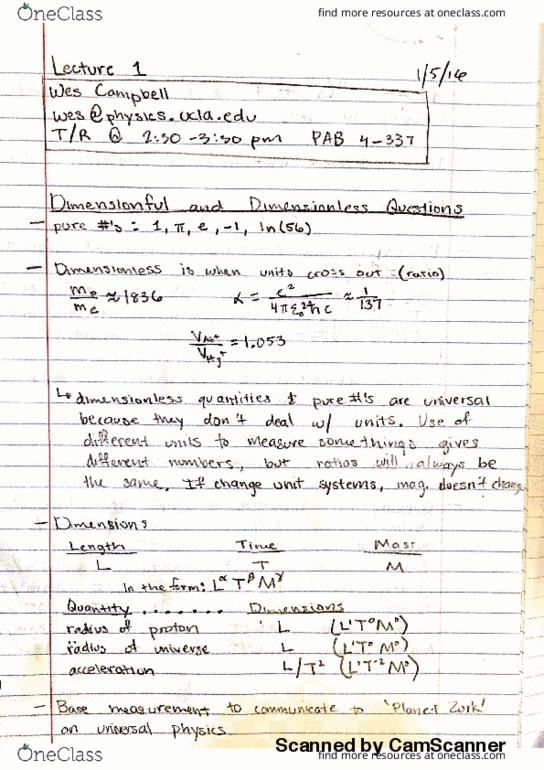 OneClass
find more resources at oneclass.com
Lecture 1
1/5/16
Wes Campbell
wes@physics.ucla.edu
T/R @ 2:30 -3:30 pm PAB 4-337
Dimensionful and Dimensionless Questions
— pure #'s : 1, π, e, -1, ln(56)
— Dimensionless is when units cross out (ratio)
≈ 1836 α = e² / 4πε₀ħc ≈ 1/137
= 1.053
↳ dimensionless quantities & pure #'s are universal
because they don't deal w/ units. Use of
different units to measure somethings gives
different numbers, but ratios will always be
the same. If change unit systems, mag. doesn't change
— Dimensions
Length Time Mass
L T M
In the form: L^α T^β M^γ
Quantity ....... Dimensions
radius of proton L (L¹T⁰M⁰)
radius of universe L (L¹T⁰M⁰)
acceleration L/T² (L¹T⁻²M⁰)
— Base measurement to communicate to 'Planet Zork'
on universal physics.
Scanned by CamScanner
OneClass
find more resources at oneclass.com